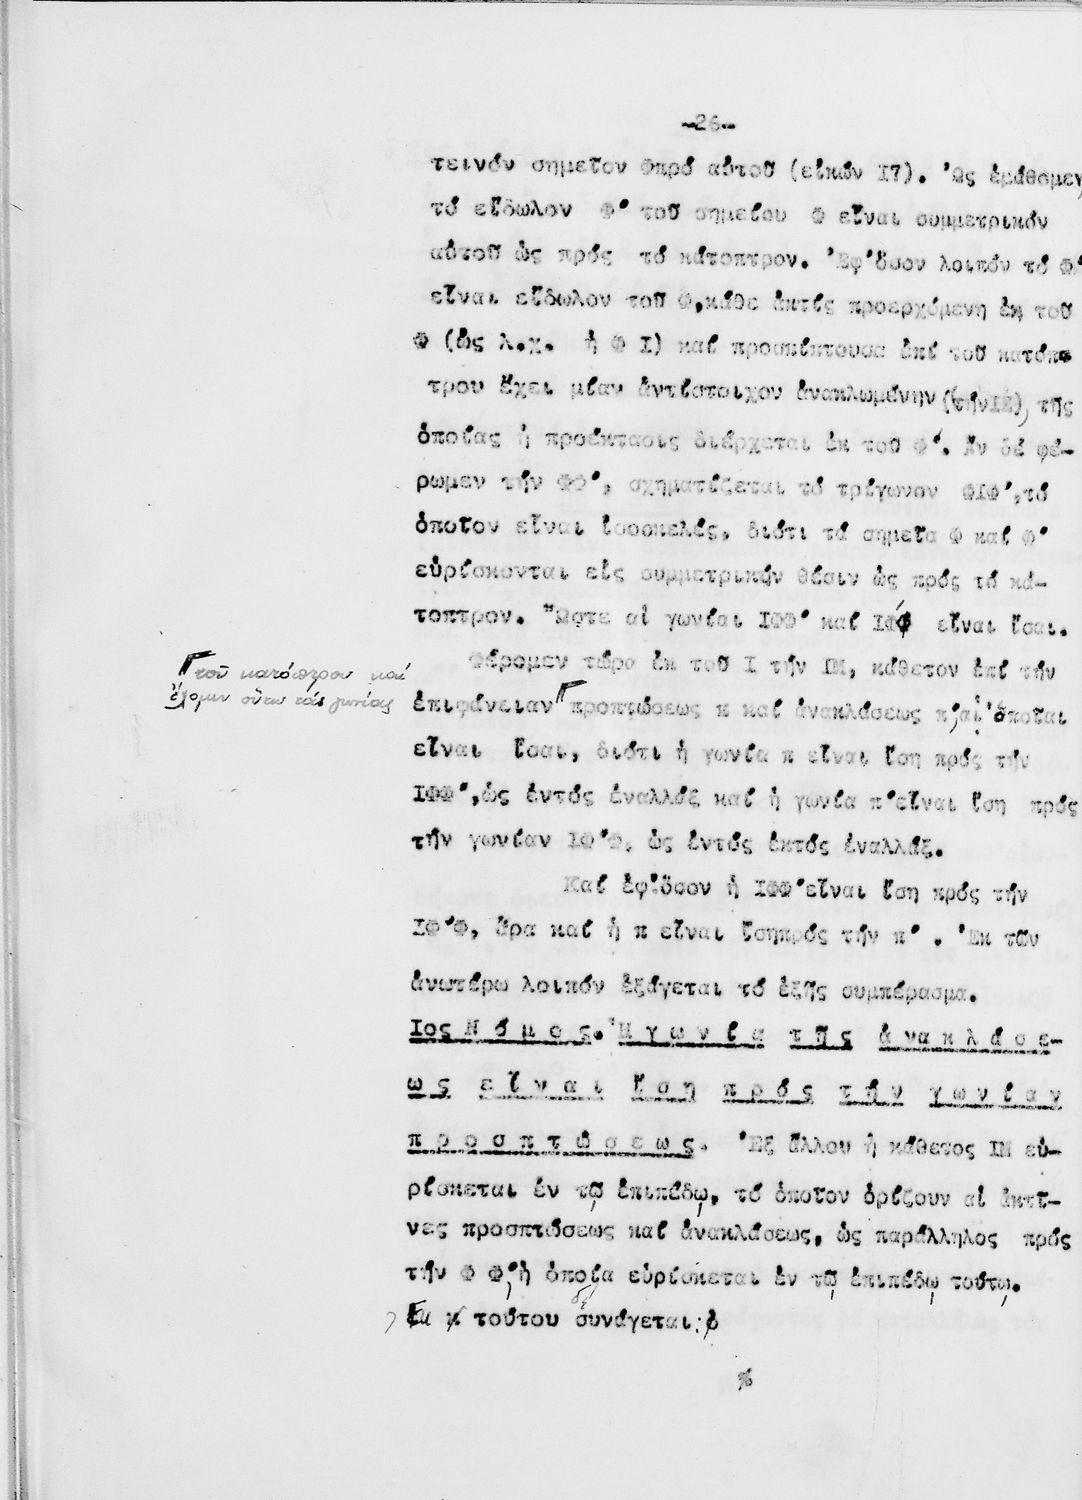 -26-
τεινόν σημεῖον Φπρό αὐτοῦ (εἰκών Ι7). Ὡς ἐμάθομεν,
τό εἴδωλον Φ' τοῦ σημείου Φ εἶναι συμμετρικόν
αὐτοῦ ὡς πρός τό κάτοπτρον. Ἐφ'ὅσον λοιπόν τό Φ'
εἶναι εἴδωλον τοῦ Φ,κάθε ἀκτίς προερχόμενη ἐκ τοῦ
Φ (ὡς λ.χ. ἡ Φ Ι) καί προσπίπτουσα ἐπί τοῦ κατόπ-
τρου ἔχει μίαν ἀντίστοιχον ἀνακλωμένην (τήνΙΣ), τῆς
ὁποίας ἡ προέκτασις διέρχεται ἐκ τοῦ Φ'. Ἄν δέ φέ-
ρωμεν τήν ΦΦ', σχηματίζεται τό τρίγωνον ΦΙΦ',τό
ὁποῖον εἶναι ἰσοσκελές, διότι τά σημεῖα Φ καί Φ'
εὑρίσκονται εἰς συμμετρικήν θέσιν ὡς πρός τό κά-
τοπτρον. Ὥστε αἱ γωνίαι ΙΦΦ' καί ΙΦ'Φ εἶναι ἴσαι.
Φέρομεν τώρα ἐκ τοῦ Ι τήν ΙΜ, κάθετον ἐπί τήν
Γτοῦ κατόπτρου καί
ἔχομεν οὕτω τάς γωνίας
ἐπιφάνειανΓπροπτώσεως π καί ἀνακλάσεως π',αἱ ὁποῖαι
εἶναι ἴσαι, διότι ἡ γωνία π εἶναι ἴση πρός τήν
ΙΦΦ',ὡς ἐντός ἐναλλάξ καί ἡ γωνία π'εἶναι ἴση πρός
τήν γωνίαν ΙΦ'Φ, ὡς ἐντός ἐκτός ἐναλλάξ.
Καί ἐφ'ὅσον ἡ ΙΦΦ'εἶναι ἴση πρός τήν
ΙΦ'Φ, ἄρα καί ἡ π εἶναι ἴσηπρός τήν π' . Ἐκ τῶν
ἀνωτέρω λοιπόν ἐξάγεται τό ἑξῆς συμπέρασμα.
Ιος Ν ό μ ο ς. Ἡ γ ω ν ί α τ ῆ ς ἀ ν α κ λ ά σ ε-
ω ς ε ἶ ν α ι ἴ σ η π ρ ό ς τ ή ν γ ω ν ί α ν
π ρ ο σ π τ ώ σ ε ω ς. Ἐξ ἄλλου ἡ κάθετος ΙΜ εὑ-
ρίσκεται ἐν τῷ ἐπιπέδῳ, τό ὁποῖον ὁρίζουν αἱ ἀκτῖ-
νες προσπτώσεως καί ἀνακλάσεως, ὡς παράλληλος πρός
τήν Φ Φ',ἡ ὁποία εὑρίσκεται ἐν τῷ ἐπιπέδῳ τούτῳ.
Ἐκ τούτου δέ συνάγεται:ὁ
%